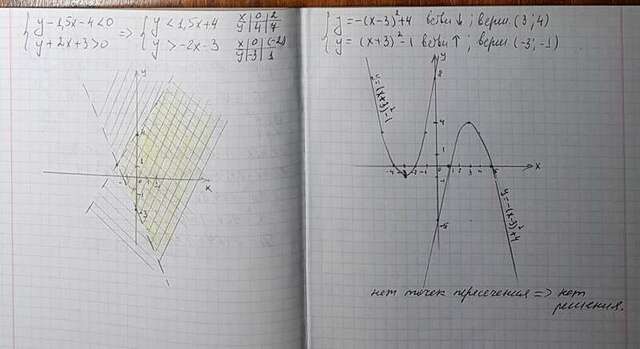 { y - 1,5x - 4 < 0
y + 2x + 3 > 0
=> { y < 1,5x + 4
y > -2x - 3
x | 0 | 2
y | 4 | 4
x | 0 | (-2)
y | -3 | 1
y
x
{ y = -(x-3)² + 4 ветви ↓; верш (3; 4)
y = (x+3)² - 1 ветви ↑; верш (-3; -1)
y
8
y = (x+3)² - 1
4
1
x
-5
y = -(x-3)² + 4
нет точек пересечения => нет
решения.